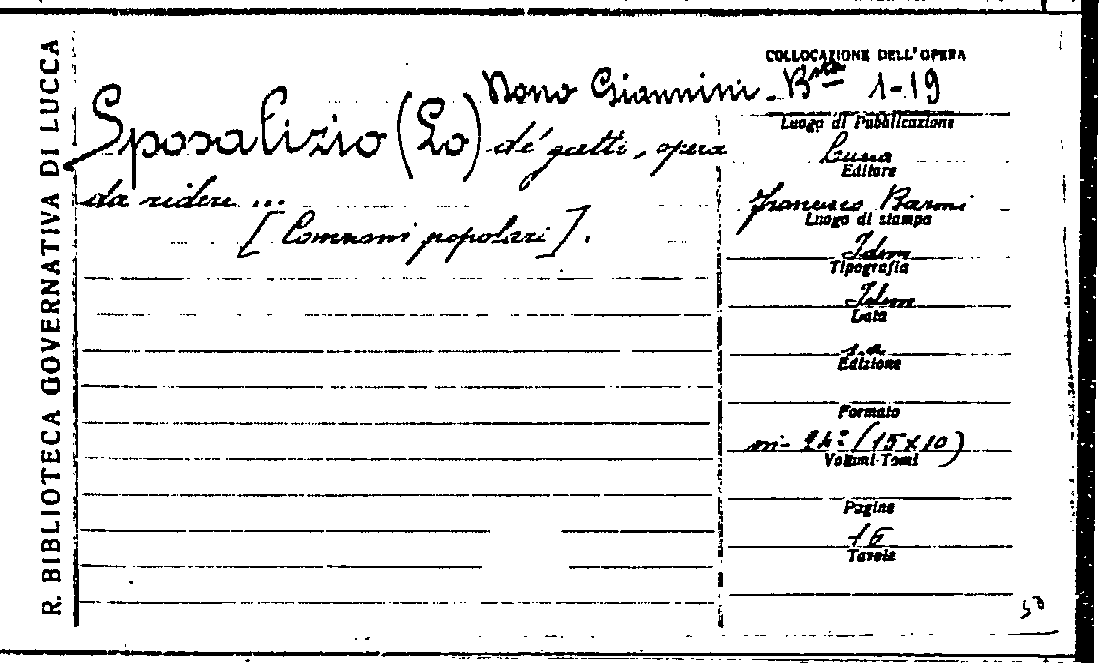 R. BIBLIOTECA GOVERNATIVA DI LUCCA
COLLOCAZIONE DELL'OPERA
Nono Giannini - Bta 1-19
Sposalizio (Lo) de' gatti, opera
da ridere ...
[Componi popolari].
Luogo di Pubblicazione
Lucca
Editore
Francesco Baroni
Luogo di stampa
Idem
Tipografia
Idem
Data
s.a.
Edizione
Formato
in- 24º (15x10)
Volumi-Tomi
Pagine
16
Tavole